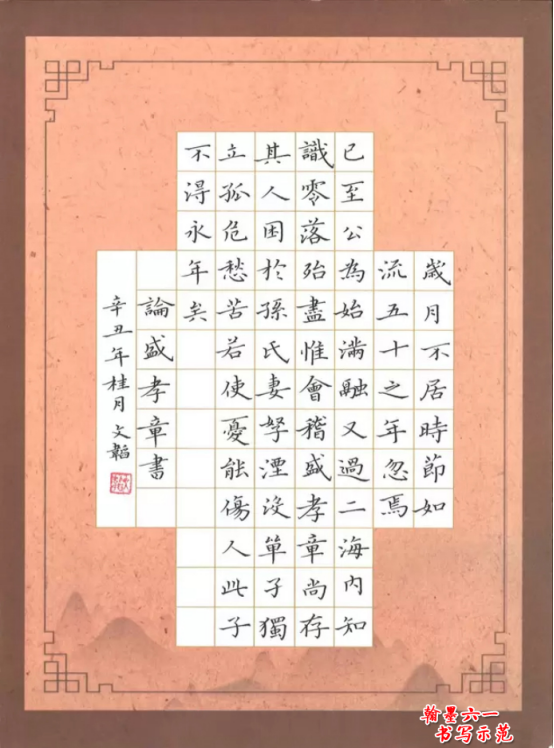 歲月不居時節如
流五十之年忽焉
已至公為始滿融又過二海內知
識零落殆盡惟會稽盛孝章尚存
其人困於孫氏妻孥湮沒單孑獨
立孤危愁苦若使憂能傷人此子
不得永年矣
論盛孝章書
辛丑年桂月文韜
翰墨六一
书写示范